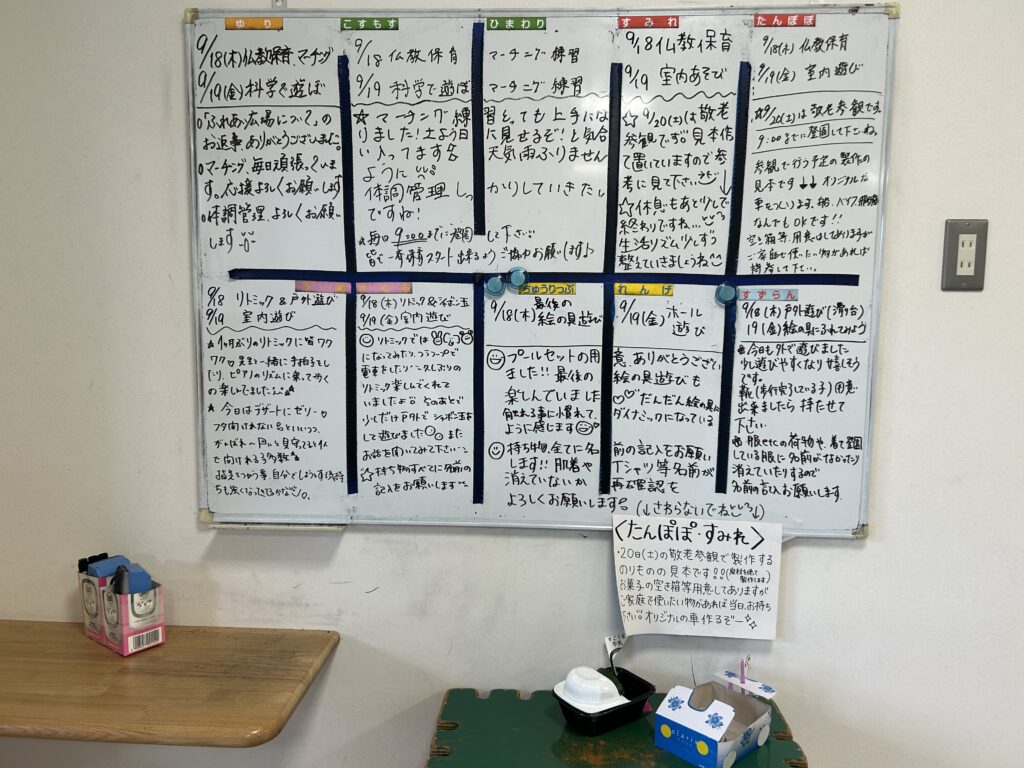 ゆり
9/18(木)仏教保育、マーチング
9/19(金)科学で遊ぼ
○「ふれあい広場について」の
お返事ありがとうございました。
○マーチング、毎日頑張っています。応援よろしくお願いします
○体調管理、よろしくお願い
します
こすもす
ひまわり
9/18 仏教保育 マーチング練習
9/19 科学で遊ぼ マーチング練習
☆マーチング練習とっても上手にな
りました!土よう日に見せるぞ!と気合
い入ってます 天気雨ふりません
ように
体調管理しっかりしていきたい
ですね!
★毎日9:00までに登園して下さい
皆で一斉スタート出来るようご協力お願いします♪
すみれ
9/18仏教保育
9/19 室内あそび
☆9/20(土)は敬老
参観です。見本作
て置いていますので参
考に見て下さい
☆休息もあと少しで
終わりですね…
生活リズム少しずつ
整えていきましょうね
たんぽぽ
9/18(木) 仏教保育
9/19(金) 室内遊び
☆9/20(土)は敬老参観です。
9:00までに登園して下さいね。
参観で行う予定の製作の
見本です↓↓オリジナルな
車をつくります。船、バイク、飛行機
なんでもOKです!!
空き箱等、用意はしてありますが
ご家庭で使いたい物があれば
持参して下さい。
9/18 リトミック&戸外遊び
9/19 室内遊び
★1ヶ月ぶりのリトミックに皆ワク
ワク♡先生と一緒に手拍子をし
たり、ピアノのリズムに乗って歩く
の楽しんでました
★今日はデザートにゼリー♡
フタ開けれない〜といいつつ、
がんばれ〜!!っと見守ってると1人
で開けれる子多数
9/18(木) リトミック&シャボン玉
9/19(金)室内遊び
リトミックでは
になってみたり、フラフープで
電車をしたり…久しぶりの
リトミック楽しんでくれて
いましたよ そのあとで
少しだけ戸外で シャボン玉を
して遊びました また
お話を聞いてみて下さい
☆持ち物すべてに名前の
記入をお願いします
ちゅうりっぷ
れんげ
9/18(木) 最後の
絵の具遊び
9/19(金) ホール
遊び
プールセットの用意、ありがとうござい
ました!! 最後の絵の具遊びも
楽しんでいました♡♡だんだん絵の具に
触れる事に慣れて、ダイナミックになっている
ように感じます
持ち物、全てに名前の記入をお願い
します!! 肌着やTシャツ等名前が
消えていないか再度確認を
よろしくお願いします。
(↓さわらないでね↓)
すずらん
9/18(木)戸外遊び(滑り台)
19(金)絵の具にふれてみよう
★今日も外で遊びました
少し遊びやすくなり嬉しそう
です。
靴(歩行完了している子)用意
出来ましたら持たせて
下さい。
服とその他の荷物や、着て登園
している服に名前がなかったり
消えていたりするので
名前の記入お願いします。
〈たんぽぽ・すみれ〉
・20日(土)の敬老参観で製作する
のりものの見本です!!(廃材を使って製作します)
お菓子の空き箱等用意してありますが
ご家庭で使いたい物があれば当日、お持ち
下さい!!オリジナルの車作るぞー